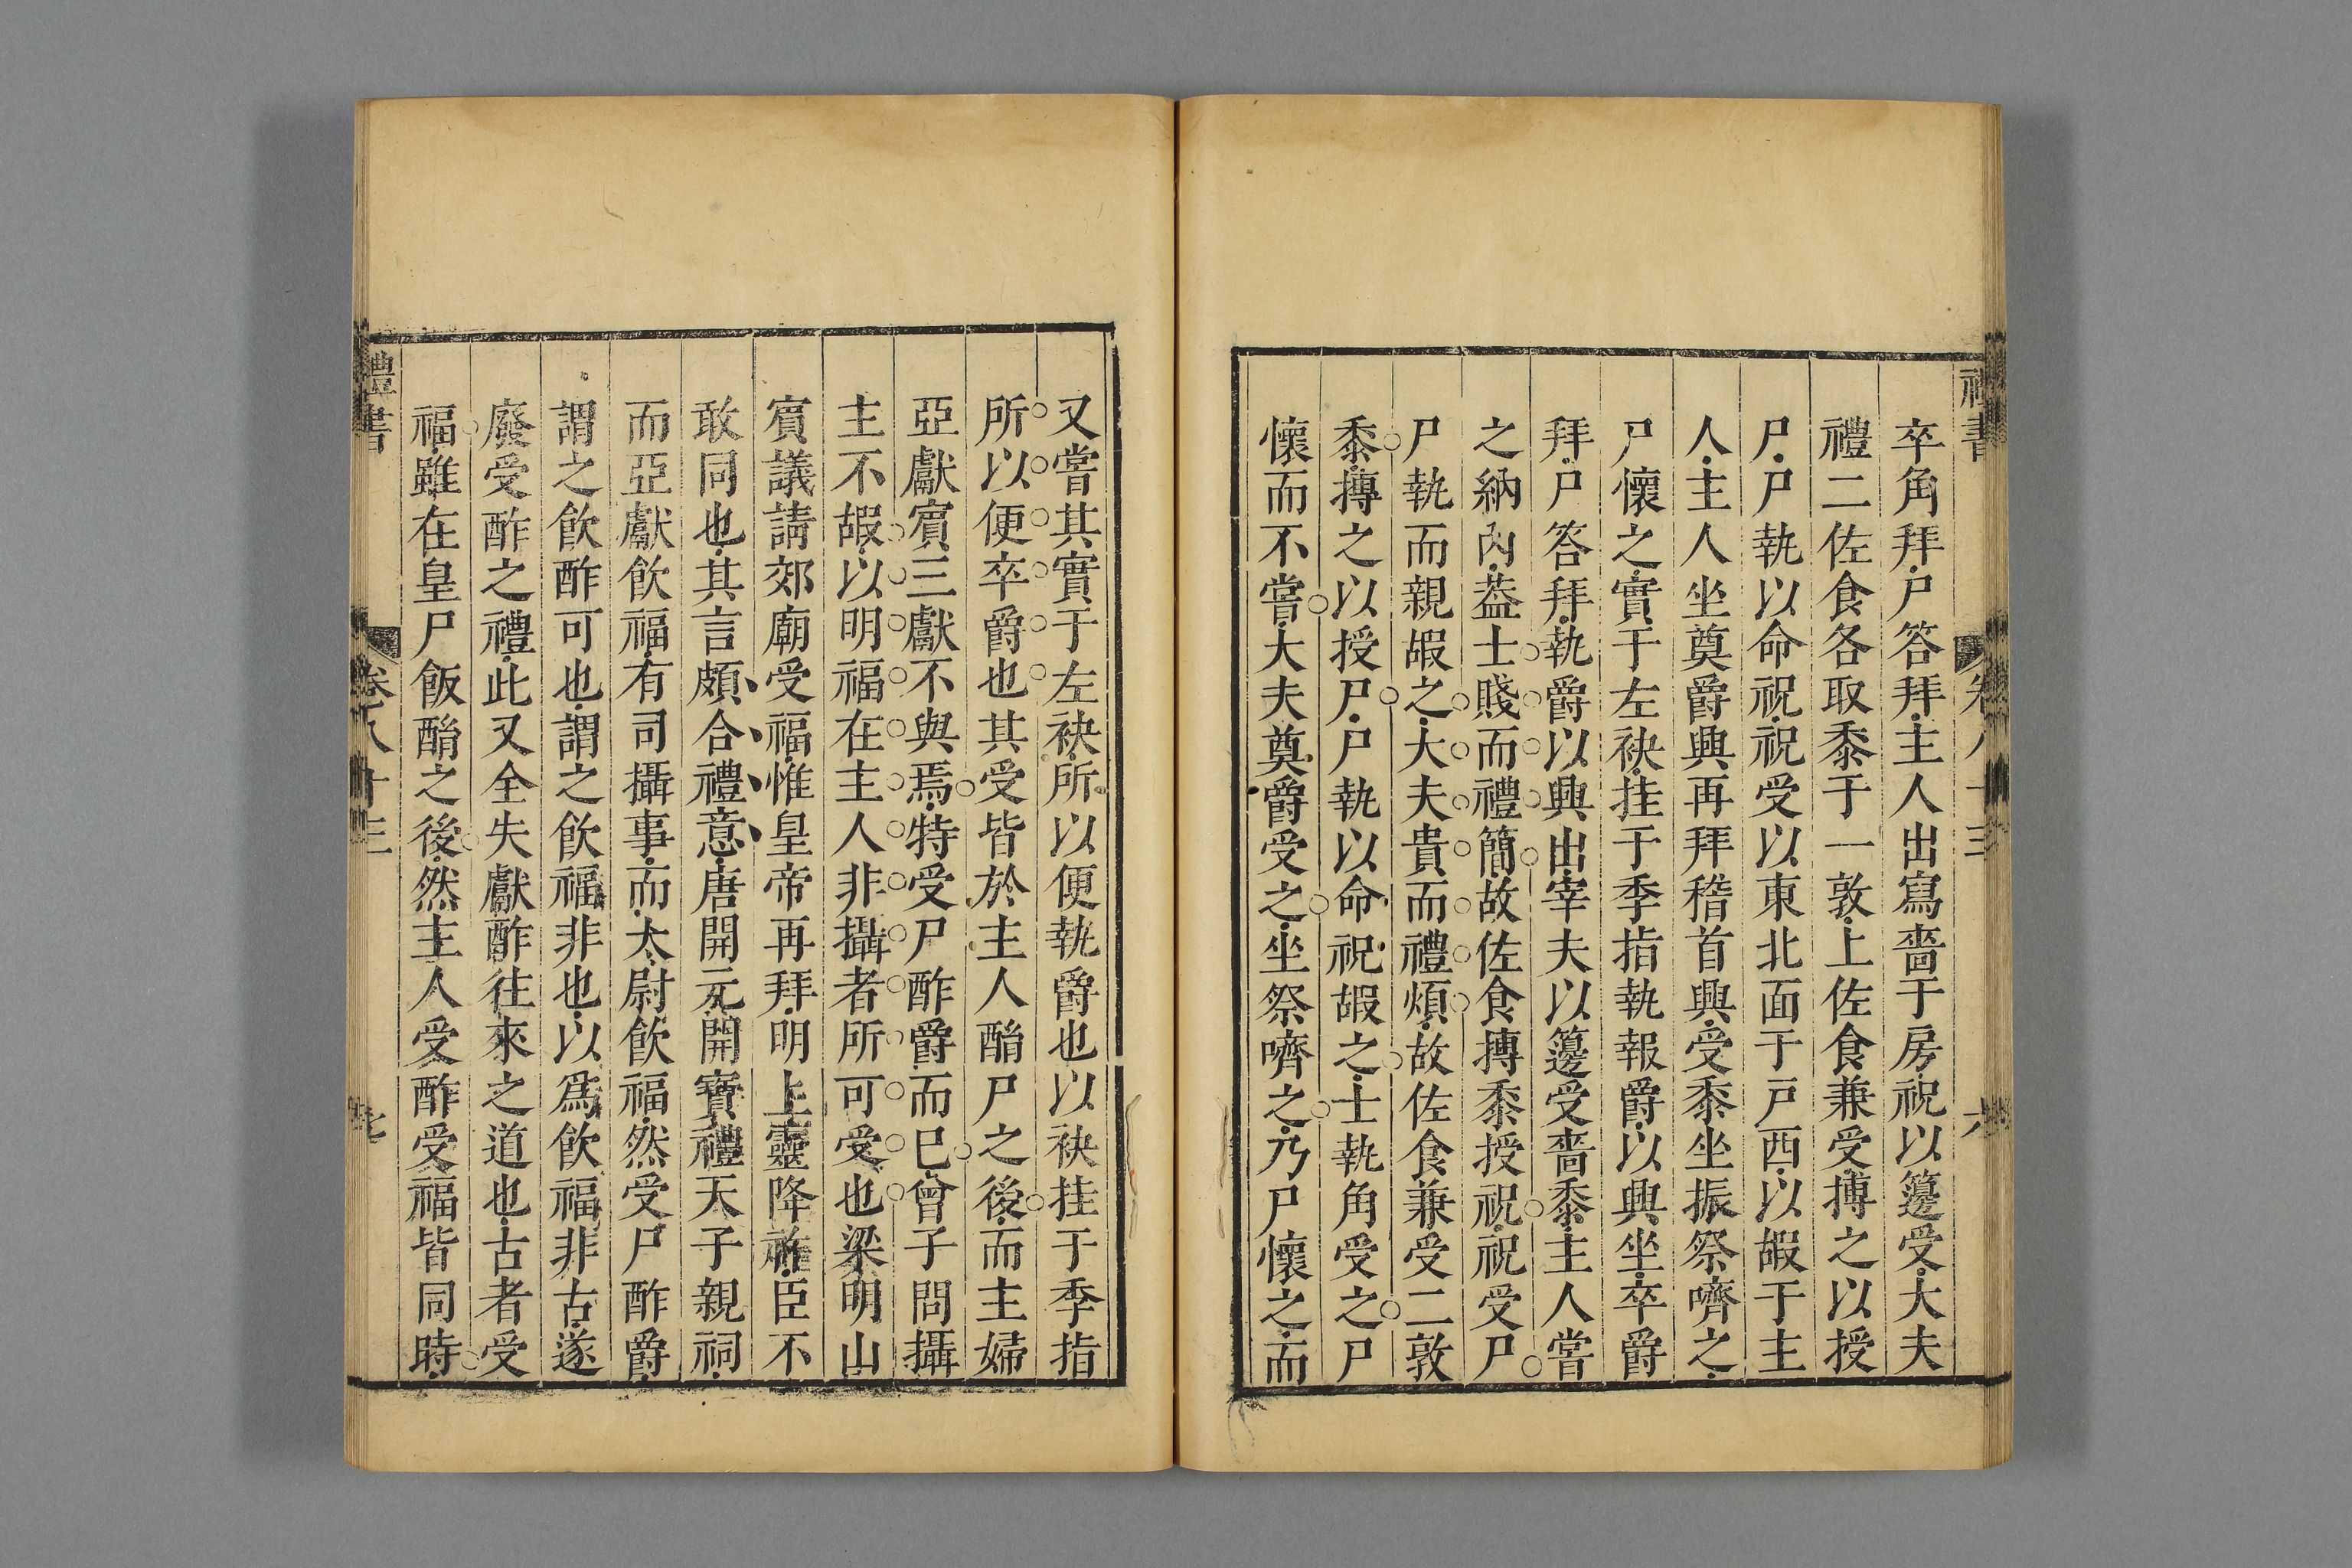 禮書 卷八十三 六
卒角拜尸答拜主人出寫嗇于房祝以籩受大夫
禮二佐食各取黍于一敦上佐食兼受摶之以授
尸尸執以命祝祝受以東北面于戸西以嘏于主
人主人坐奠爵興再拜稽首興受黍坐振祭嚌之
尸懷之實于左袂挂于季指執報爵以興坐卒爵
拜尸答拜執爵以興出宰夫以籩受嗇黍主人嘗
之納內葢士賤而禮簡故佐食摶黍授祝祝受尸
尸執而親嘏之大夫貴而禮煩故佐食兼受二敦
黍摶之以授尸尸執以命祝嘏之士執角受之尸
懷而不嘗大夫奠爵受之坐祭嚌之乃尸懷之而
又嘗其實于左袂所以便執爵也以袂挂于季指
所以便卒爵也其受皆於主人酳尸之後而主婦
亞獻賓三獻不與焉特受尸酢爵而巳曾子問攝
主不嘏以明福在主人非攝者所可受也梁明山
賓議請郊廟受福惟皇帝再拜明上靈降祚臣不
敢同也其言頗合禮意唐開元開寶禮天子親祠
而亞獻飲福有司攝事而太尉飲福然受尸酢爵
謂之飲酢可也謂之飲福非也以爲飲福非古遂
廢受酢之禮此又全失獻酢往來之道也古者受
福雖在皇尸飯酳之後然主人受酢受福皆同時
禮書 卷八十三 七